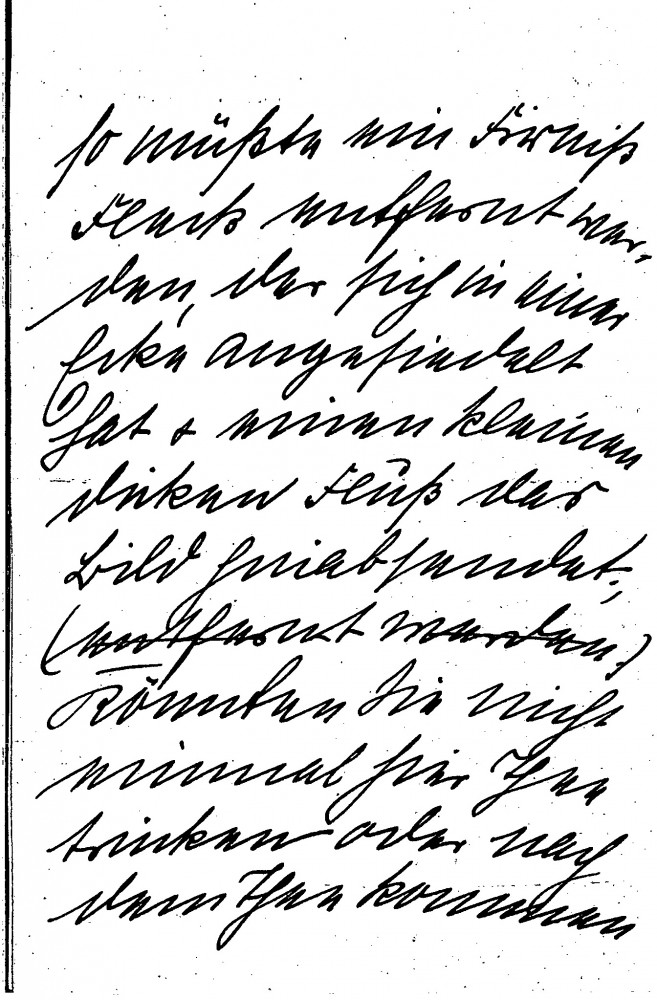 so müßte ein Firniß
Fleck entfernt wer-
den, der sich in einer
Ecke angesiedelt
hat & einen kleinen
dicken Fluß das
Bild hinabsendet;
(entfernt werden)
Könnten Sie nicht
einmal hier Thee
trinken oder nach
dem Thee kommen